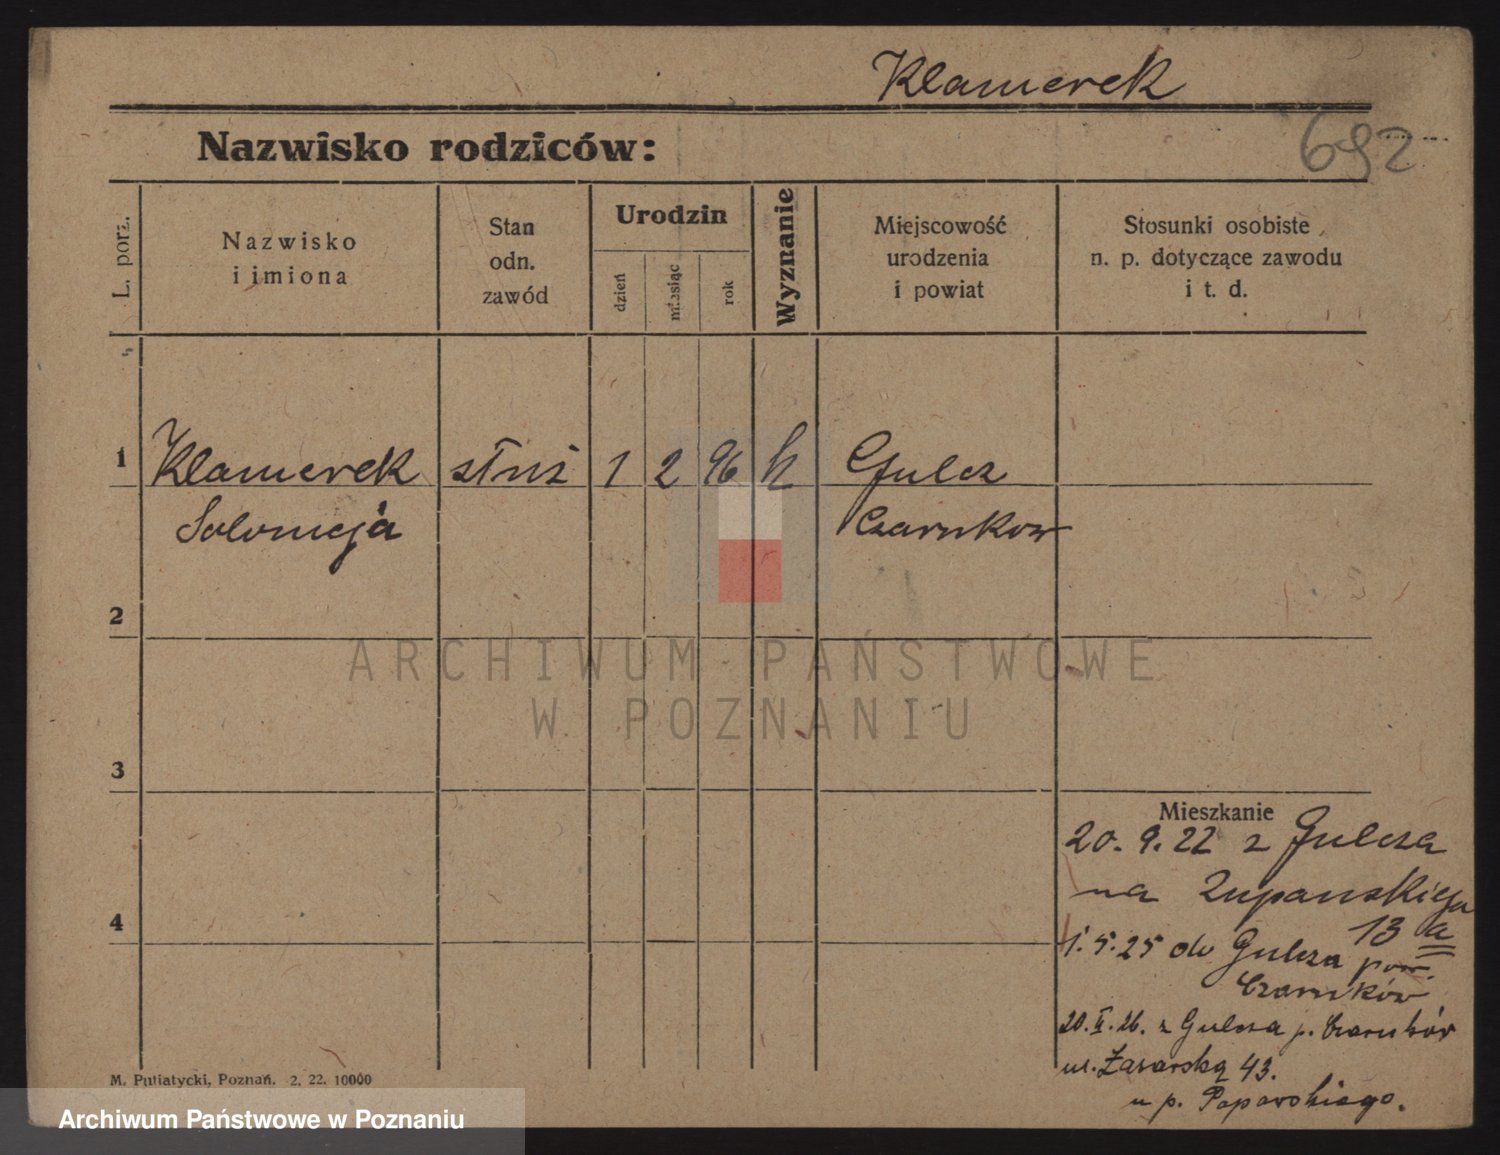 Klamerek
692
Nazwisko rodziców:
L. porz.
Nazwisko
i imiona
Stan
odn.
zawód
Urodzin
dzień
miesiąc
rok
Wyznanie
Miejscowość
urodzenia
i powiat
Stosunki osobiste
n. p. dotyczące zawodu
i t. d.
1 Klamerek służ 1 2 96 k Gulcz
Salomeja Czarnkow
2
ARCHIWUM PAŃSTWOWE
W POZNANIU
3
Mieszkanie
20. 9. 22 z Gulcza
na Zupanskiego
4
13 a
1. 5. 25 do Gulcza pow.
Czarnków
20. II. 26. z Gulcza p. Czarnków
ul. 43.
u p.
M. Putiatycki, Poznań. 2. 22. 10000
Archiwum Państwowe w Poznaniu